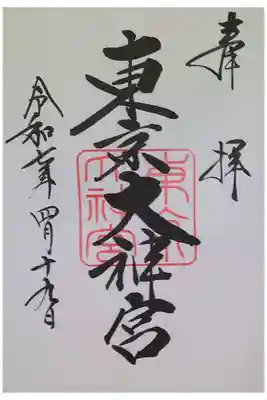 奉拝
東京大神宮
令和七年四月十九日
東京
大神宮